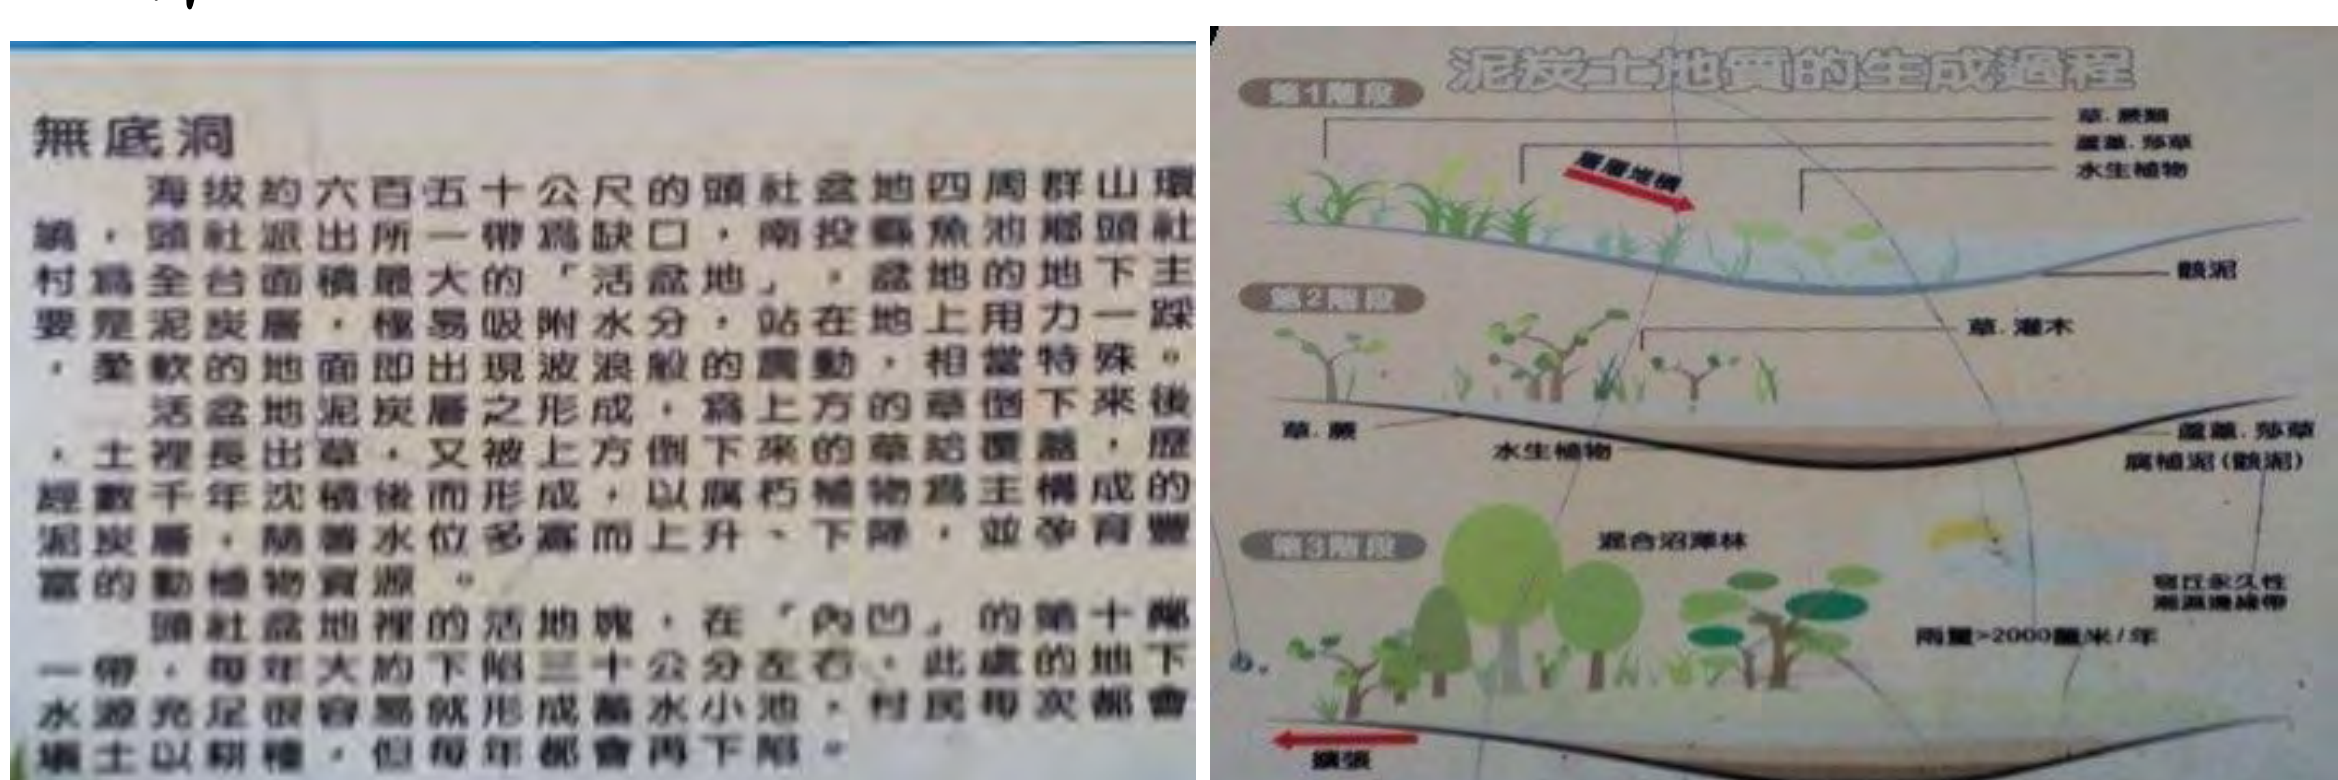 無底洞
海拔約六百五十公尺的頭社盆地四周群山環
繞，頭社派出所一帶為缺口，南投縣魚池鄉頭社
村為全台面積最大的「活盆地」，盆地的地下主
要是泥炭層，極易吸附水分，站在地上用力一踩
，柔軟的地面即出現波浪般的震動，相當特殊。
活盆地泥炭層之形成，為上方的草倒下來後
，土裡長出草，又被上方倒下來的草給覆蓋，歷
經數千年沈積後而形成，以腐朽植物為主構成的
泥炭層，隨著水位多寡而上升、下降，並孕育豐
富的動植物資源。
頭社盆地裡的活地塊，在「內凹」的第十鄰
一帶，每年大約下陷三十公分左右，此處的地下
水源充足很容易就形成蓄水小池，村民每次都會
填土以耕種，但每年都會再下陷。
泥炭土地質的生成過程
第1階段
草.蕨類
蘆葦.莎草
水生植物
層層堆積
骸泥
第2階段
草.灌木
草.蕨
水生植物
蘆葦.莎草
腐植泥(骸泥)
第3階段
混合沼澤林
窪丘永久性
潮濕邊緣帶
雨量>2000厘米/年
擴張